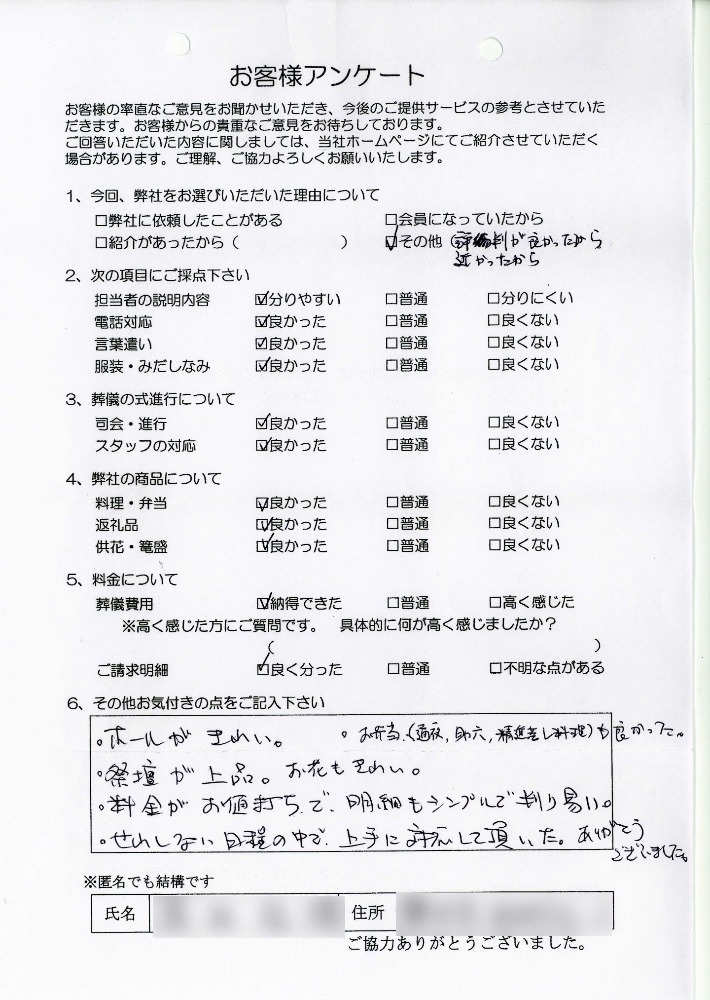 お客様アンケート
お客様の率直なご意見をお聞かせいただき、今後のご提供サービスの参考とさせていた
だきます。お客様からの貴重なご意見をお待ちしております。
ご回答いただいた内容に関しましては、当社ホームページにてご紹介させていただく
場合があります。ご理解、ご協力よろしくお願いいたします。
1、今回、弊社をお選びいただいた理由について
□弊社に依頼したことがある □会員になっていたから
□紹介があったから（ ） ☑その他（評判が良かったから
近かったから
2、次の項目にご採点下さい
担当者の説明内容 ☑分りやすい □普通 □分りにくい
電話対応 ☑良かった □普通 □良くない
言葉遣い ☑良かった □普通 □良くない
服装・みだしなみ ☑良かった □普通 □良くない
3、葬儀の式進行について
司会・進行 ☑良かった □普通 □良くない
スタッフの対応 ☑良かった □普通 □良くない
4、弊社の商品について
料理・弁当 ☑良かった □普通 □良くない
返礼品 ☑良かった □普通 □良くない
供花・篭盛 ☑良かった □普通 □良くない
5、料金について
葬儀費用 ☑納得できた □普通 □高く感じた
※高く感じた方にご質問です。 具体的に何が高く感じましたか？
（ ）
ご請求明細 ☑良く分った □普通 □不明な点がある
6、その他お気付きの点をご記入下さい
。ホールがきれい。 。お弁当、（通夜、助六、精進落し料理）も良かった。
。祭壇が上品。お花もきれい。
。料金がお値打ちで、明細もシンプルで判り易い。
。せわしない日程の中で、上手に対応して頂いた。ありがとう
ございました。
※匿名でも結構です
氏名 住所
ご協力ありがとうございました。